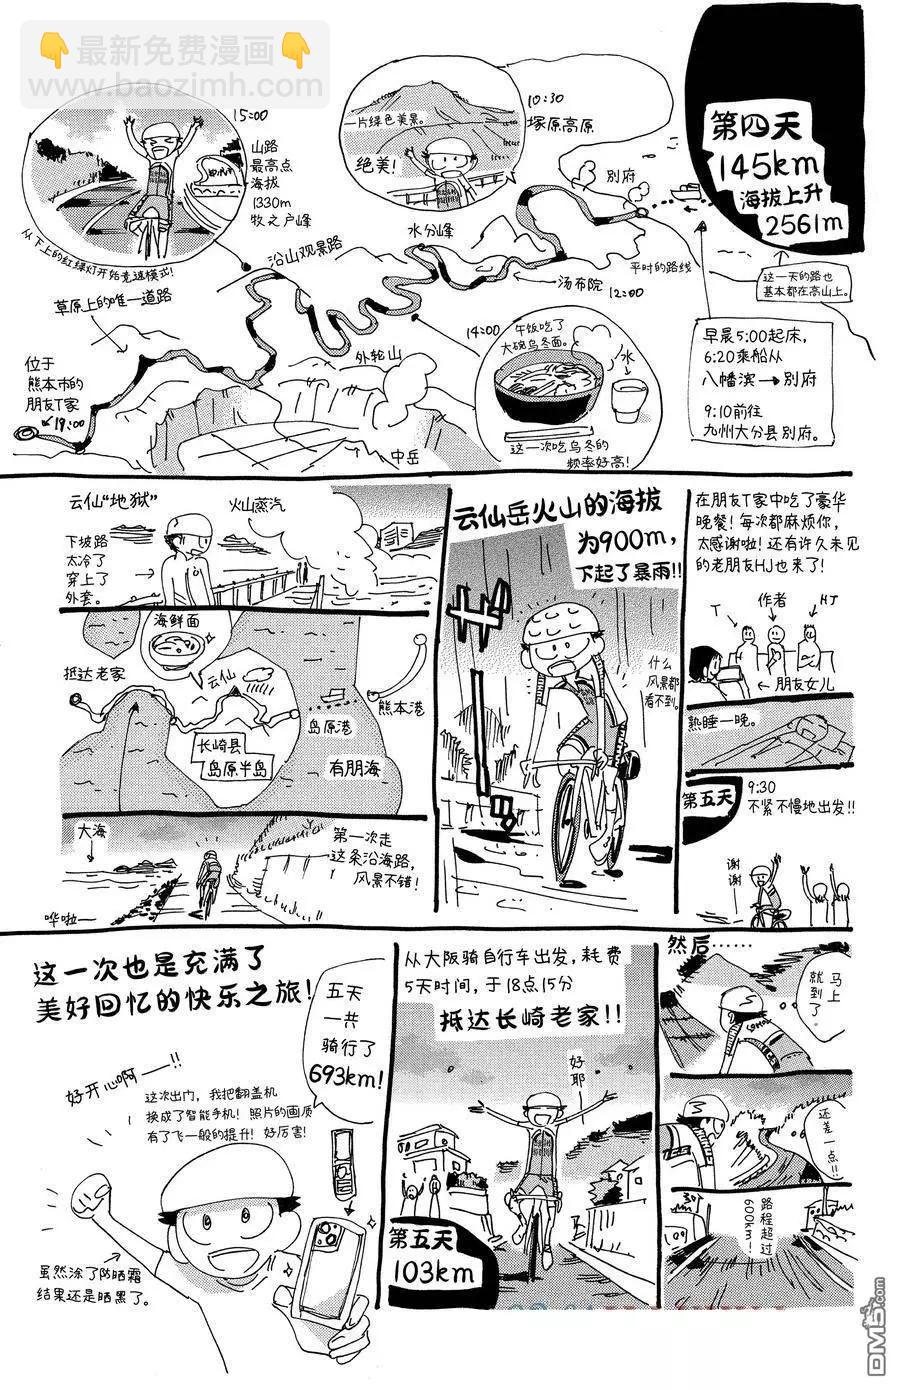 👇最新免费漫画👇
www.baozimh.com
第四天
145km
海拔上升
2561m
这一天的路也
基本都在高山上。
早晨5:00起床，
6:20乘船从
八幡滨→别府
9:10前往
九州大分县别府。
别府
平时的路线
10:30
塚原高原
一片绿色美景。
绝美！
水分峰
汤布院
12:00
14:00
午饭吃了
大碗乌冬面。
水
这一次吃乌冬的
频率好高！
15:00
山路
最高点
海拔
1330m
牧之户峰
从下上的红绿灯开始竞速模式！
沿山观景路
草原上的唯一道路
外轮山
中岳
位于
熊本市的
朋友T家
18:00
在朋友T家中吃了豪华
晚餐！每次都麻烦你，
太感谢啦！还有许久未见
的老朋友HJ也来了！
T
作者
HJ
朋友女儿
熟睡一晚。
第五天
9:30
不紧不慢地出发!!
谢谢
云仙岳火山的海拔
为900m，
下起了暴雨!!
什么
风景都
看不到。
云仙“地狱”
火山蒸汽
下坡路
太冷了
穿上了
外套。
海鲜面
抵达老家
云仙
熊本港
岛原港
长崎县
岛原半岛
有朋海
大海
第一次走
这条沿海路，
风景不错！
哗啦——
然后……
马上
就到了
还差一点!!
路程超过
600km!
从大阪骑自行车出发，耗费
5天时间，于18点15分
抵达长崎老家!!
好耶
第五天
103km
这一次也是充满了
美好回忆的快乐之旅！
五天
一共
骑行了
693km!
好开心啊——!!
这次出门，我把翻盖机
换成了智能手机！照片的画质
有了飞一般的提升！好厉害！
虽然涂了防晒霜
结果还是晒黑了。
DM5.com